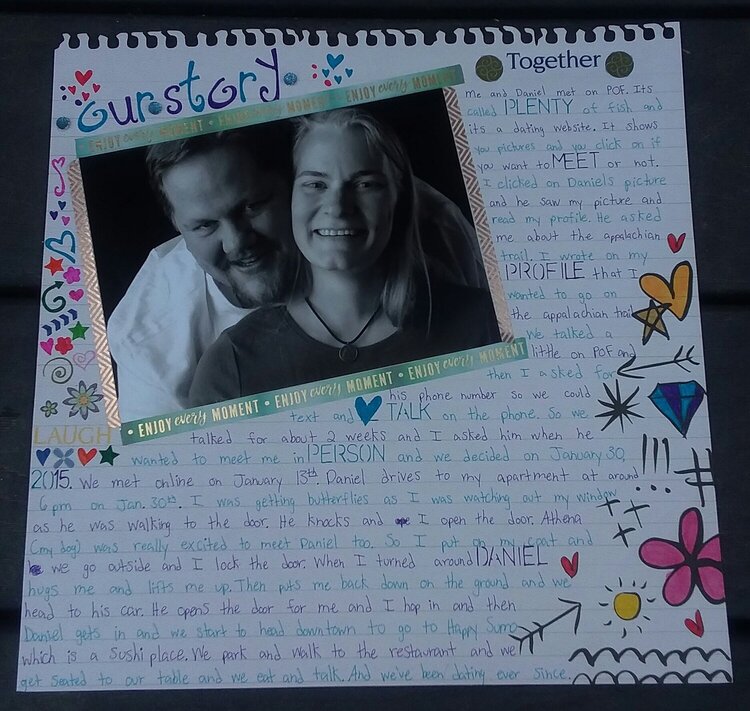 our story
Together
ENJOY every MOMENT • ENJOY every MOMENT • ENJOY every MOMENT
Me and Daniel met on POF. Its
called PLENTY of fish and
its a dating website. It shows
you pictures and you click on if
you want to MEET or not.
I clicked on Daniels picture
and he saw my picture and
read my profile. He asked
me about the appalachian
trail. I wrote on my
PROFILE that I
wanted to go on
the appalachian trail
We talked a
little on POF and
then I asked for
• ENJOY every MOMENT • ENJOY every MOMENT • ENJOY every MOMENT
his phone number so we could
text and TALK on the phone. So we
LAUGH
talked for about 2 weeks and I asked him when he
wanted to meet me in PERSON and we decided on January 30,
2015. We met online on January 13th. Daniel drives to my apartment at around
6pm on Jan. 30th. I was getting butterflies as I was watching out my window
as he was walking to the door. He knocks and I open the door. Athena
(my dog) was really excited to meet Daniel too. So I put on my coat and
we go outside and I lock the door. When I turned around DANIEL
hugs me and lifts me up. Then puts me back down on the ground and we
head to his car. He opens the door for me and I hop in and then
Daniel gets in and we start to head downtown to go to Happy Sumo
which is a sushi place. We park and walk to the restaurant and we
get seated to our table and we eat and talk. And we've been dating ever since.